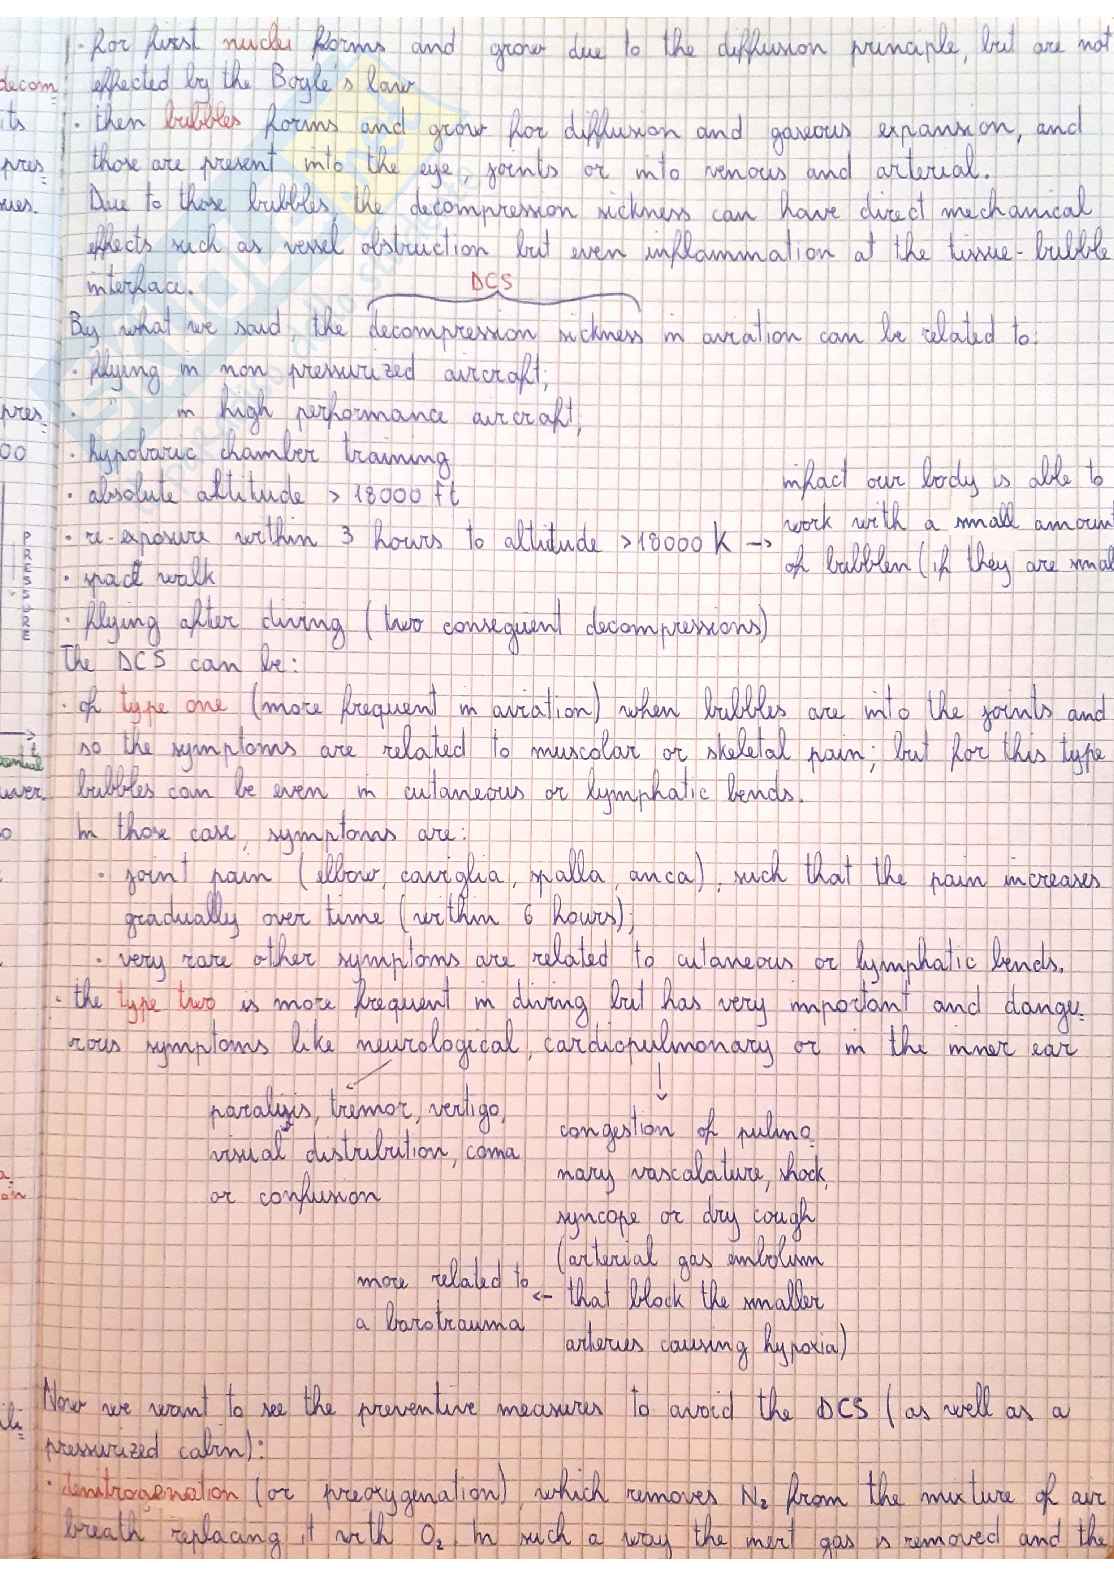 · for first nuclei forms and grow due to the diffusion principle, but are not
effected by the Bogle's law
· then bubbles forms and grow for diffusion and gaseous expansion, and
those are present into the eye, joints or into venous and arterial.
Due to those bubbles, the decompression sickness can have direct mechanical
effects such as vessel obstruction but even inflammation at the tissue-bubble
interface.
DCS
By what we said, the decompression sickness in aviation can be related to:
· flying in non pressurized aircraft;
· " in high performance aircraft;
· hypobaric chamber training
· absolute altitude > 18000 ft
· re-exposure within 3 hours to altitude >18000 K ->
infact our body is able to
work with a small amount
of bubbles (if they are small
· space walk
· flying after diving (two consequent decompressions)
The DCS can be:
· of type one (more frequent in aviation) when bubbles are into the joints and
so the symptoms are related to muscolar or skeletal pain; but for this type
bubbles can be even in cutaneous or lymphatic bends.
In those case, symptoms are:
· joint pain (elbow, caviglia, spalla, anca), such that the pain increases
gradually over time (within 6 hours);
· very rare other symptoms are related to cutaneous or lymphatic bends.
· the type two is more frequent in diving but has very important and dange=
rous symptoms like neurological, cardiopulmonary or in the inner ear
paralisis, tremor, vertigo,
visual distribution, coma
or confusion
congestion of pulmo=
nary vascalature, shock,
syncope or dry cough
(arterial gas embolism
that block the smaller
arteries causing hypoxia)
<- more related to
a barotrauma
Now we want to see the preventive measures to avoid the DCS (as well as a
pressurized cabin):
· denitrogenation (or preoxygenation), which removes N₂ from the mixture of air
breath replacing it with O₂. In such a way the inert gas is removed and the
decom=
its
pres=
sues.
pres=
00
PRESSURE
t